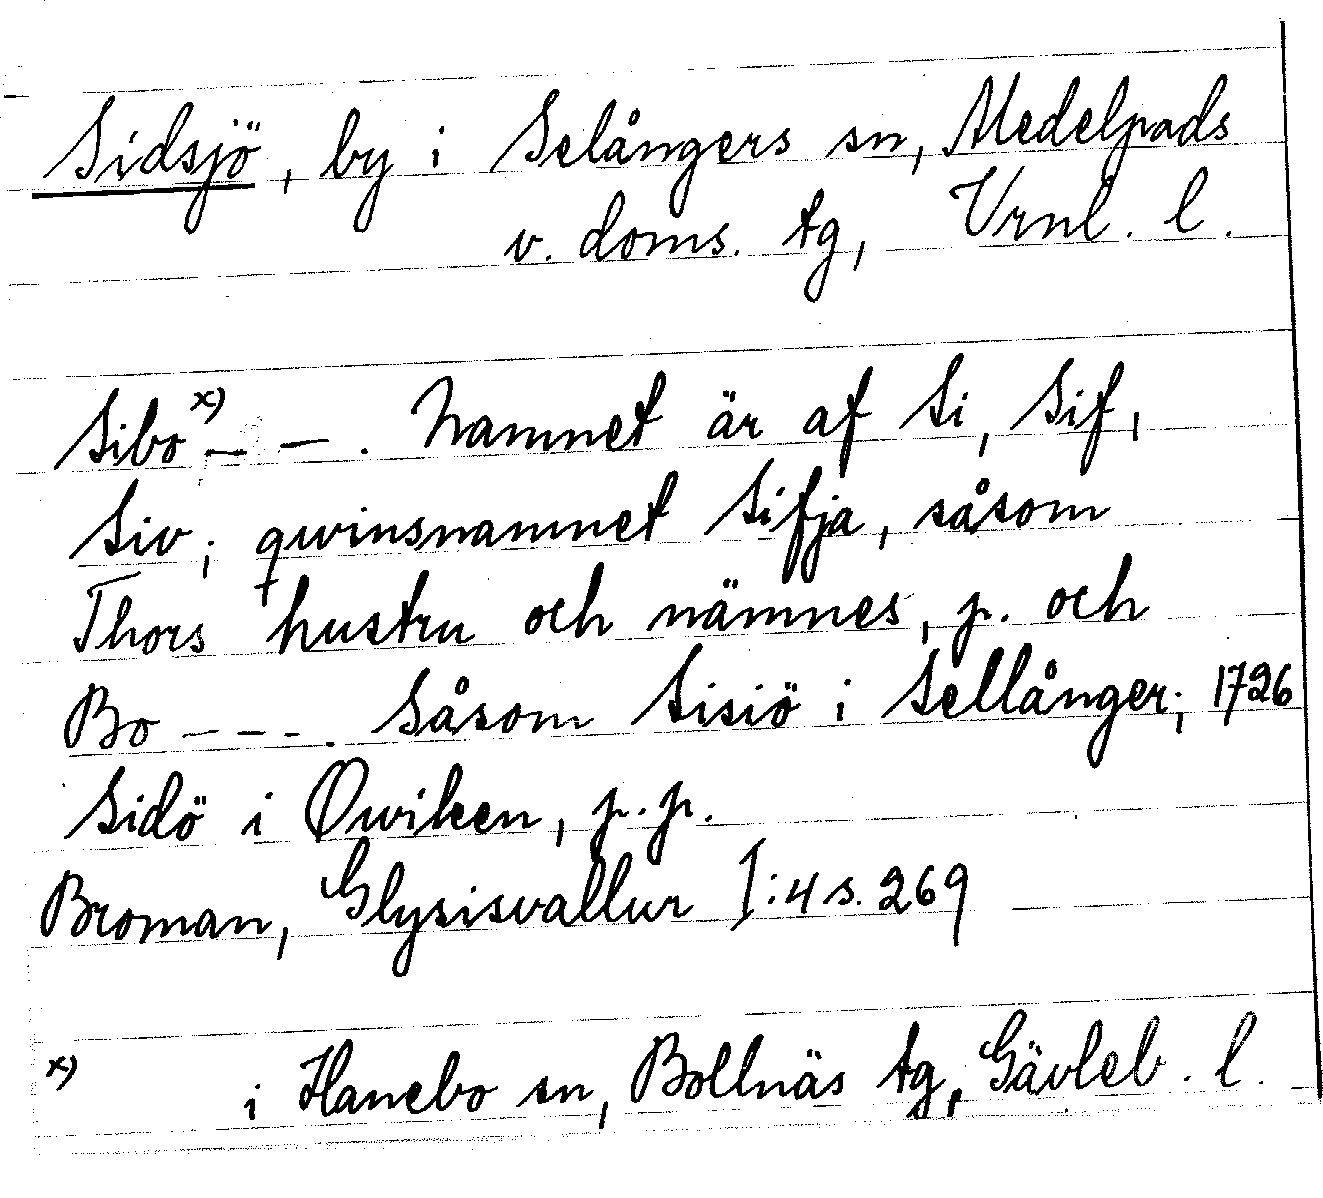 Sidsjö, by i Selångers sn, Medelpads
v. doms. tg, Vrnl. l.
Sibo x) - -. Namnet är af Si, Sif,
Siv; qvinsnamnet Sifja, såsom
Thors hustru och nämnes, p. och
Bo - - - -. Såsom Sisiö i Sellånger; 1726
Sidö i Qwiken, p.p.
Broman, Glysisvallur I:4 s. 269
x) i Hanebo sn, Bollnäs tg, Gävleb. l.